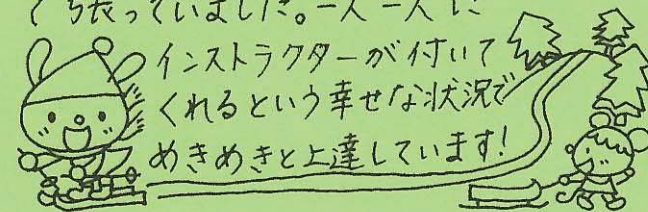 張っていました。一人一人に
インストラクターが付いて
くれるという幸せな状況で
めきめきと上達しています!